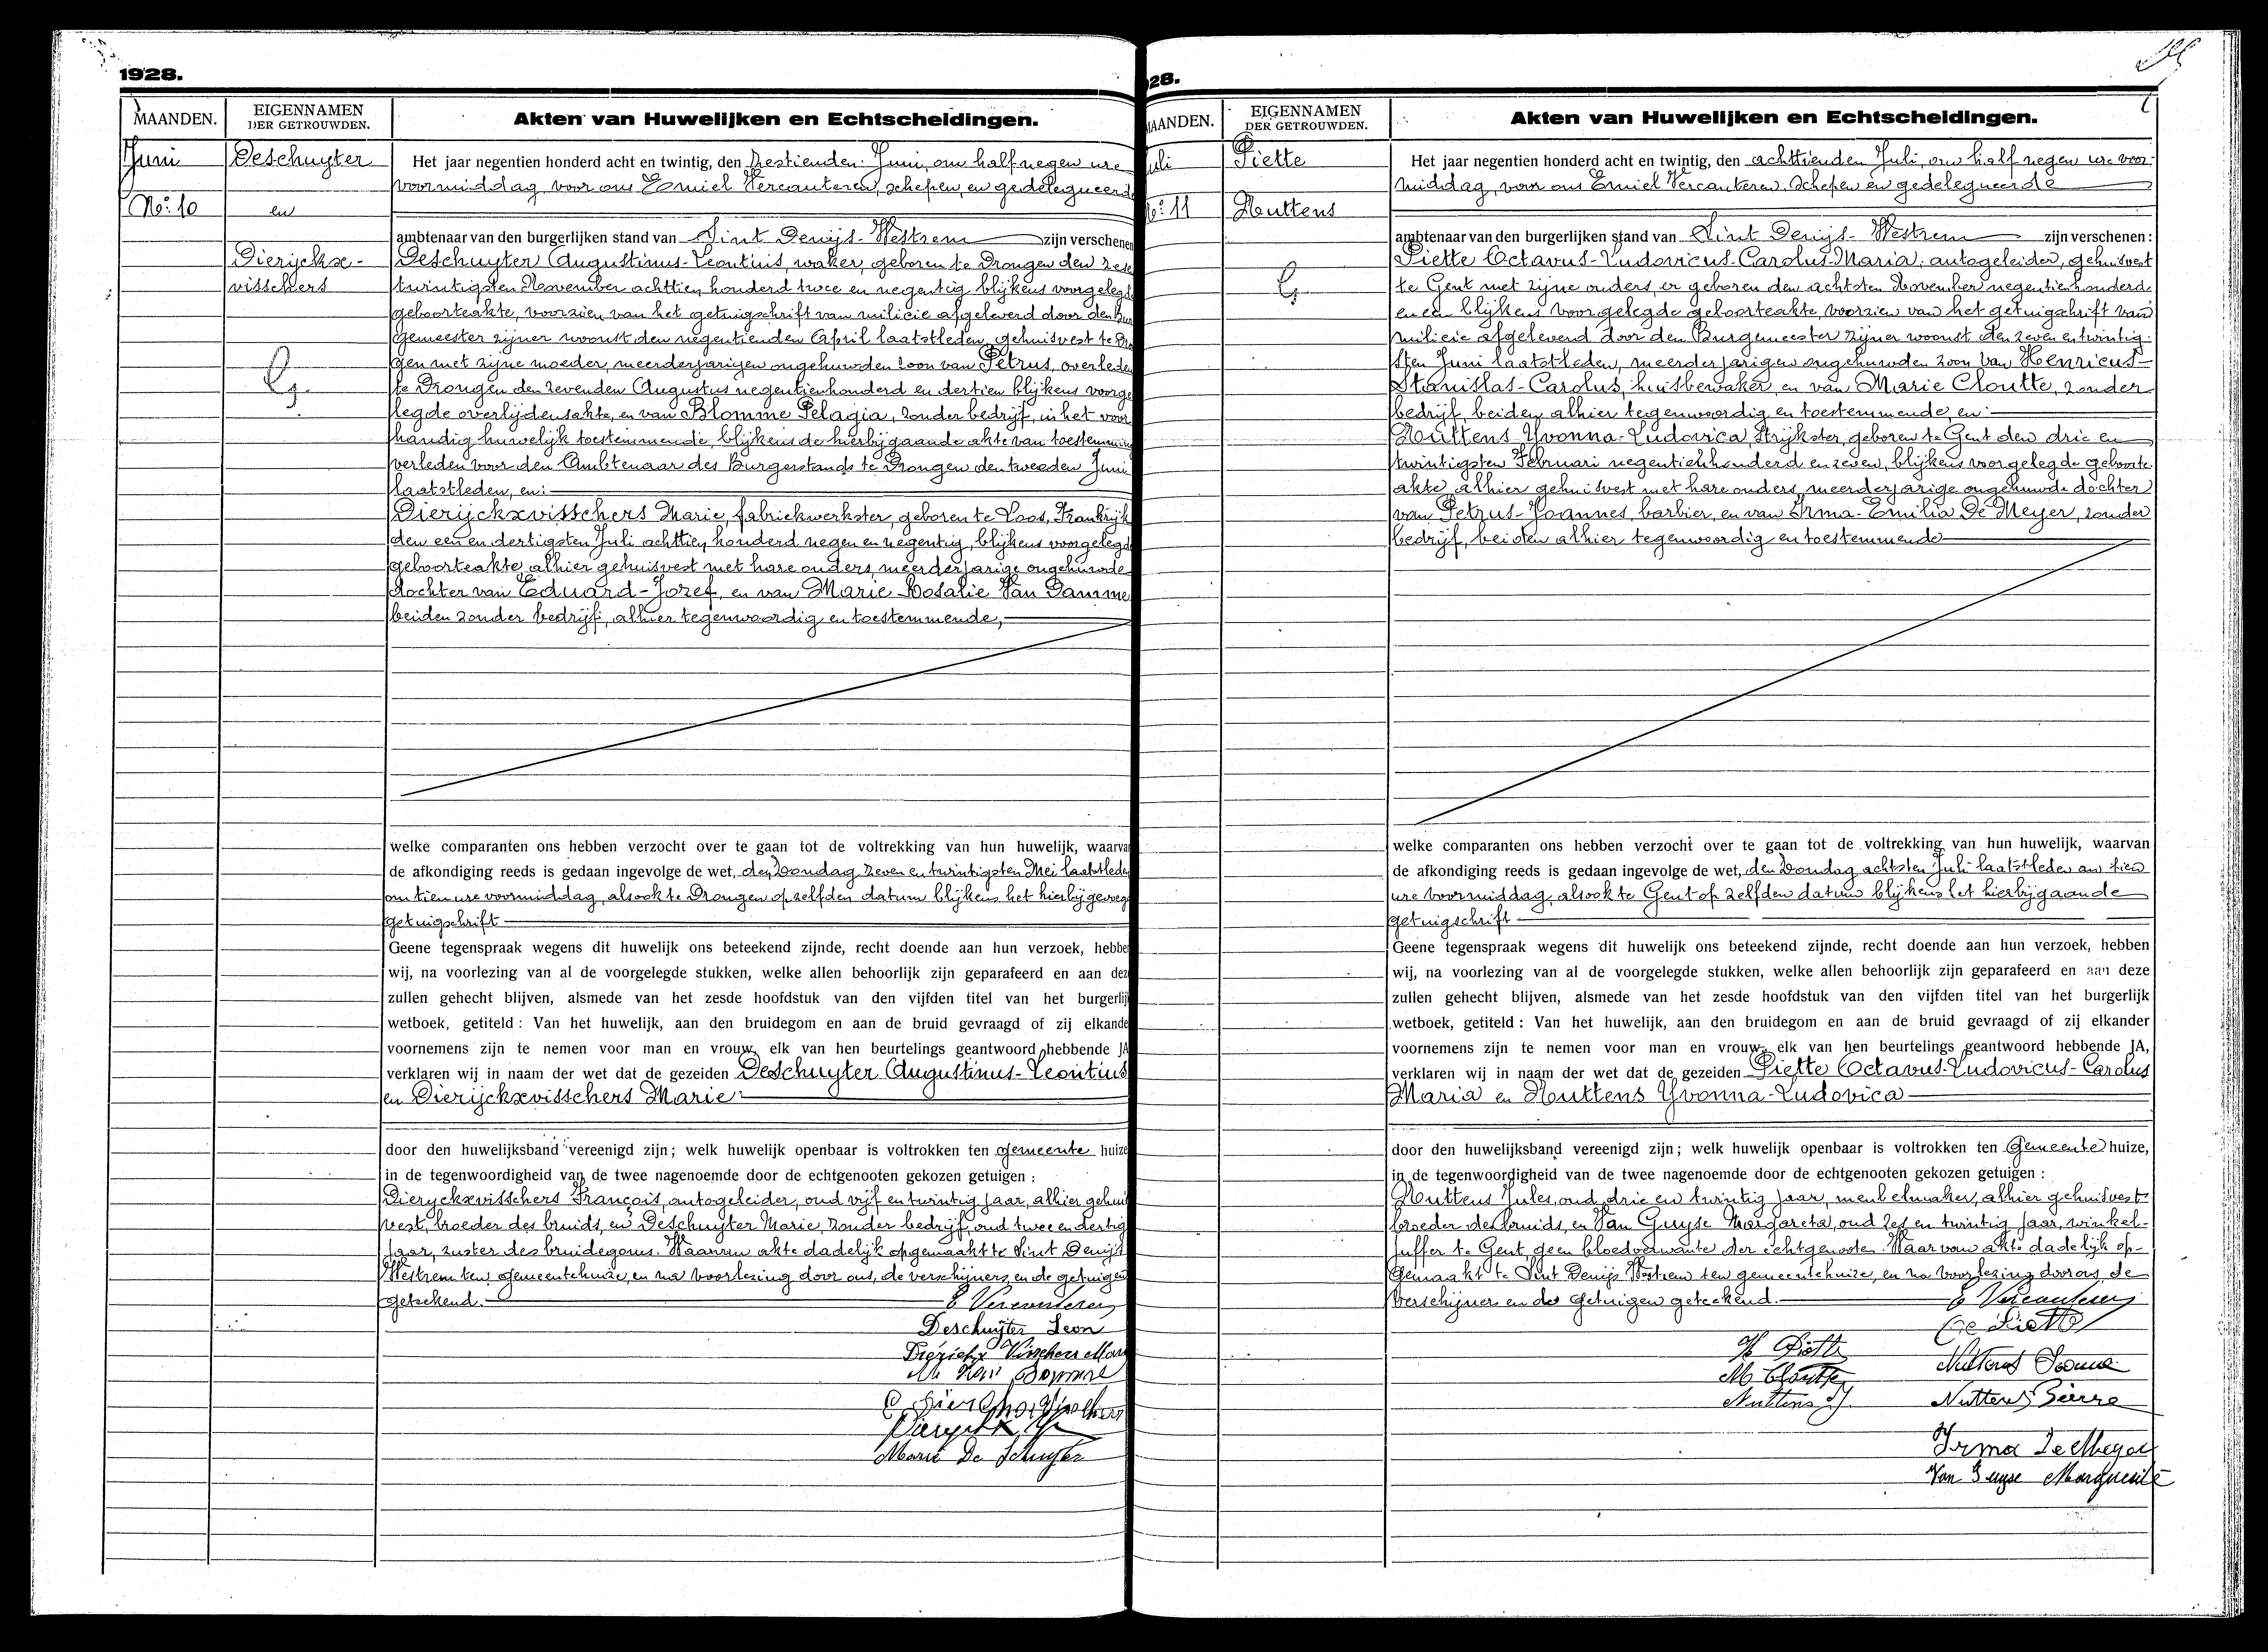 1928.
MAANDEN.
EIGENNAMEN
DER GETROUWDEN.
Akten van Huwelijken en Echtscheidingen.
Juni
No: 10
Deschuyter
en
Dieryckx-
visschers
Het jaar negentien honderd acht en twintig, den zestienden Juni, om half negen ure
voormiddag, voor ons Emiel Vercauteren, schepen, en gedelegueerd
ambtenaar van den burgerlijken stand van Sint Denijs-Westrem zijn verschenen
Deschuyter Augustinus-Leontius, waker, geboren te Drongen den zes
twintigsten November achttien honderd twee en negentig blijkens voorgelegd
geboorteakte, voorzien van het getuigschrift van milicie afgeleverd door den Bur
gemeester zijner woonst den negentienden April laatstleden, gehuisvest te Dro
gen met zijne moeder, meerderjarigen ongehuwden zoon van Petrus, overleden
te Drongen den zevenden Augustus negentienhonderd en dertien blijkens voorge
legde overlijdensakte, en van Blomme Pelagia, zonder bedrijf, in het voor
handig huwelijk toestemmende, blijkens de hierbijgaande akte van toestemming
verleden voor den Ambtenaar des Burgerstands te Drongen den tweeden Juni
laatstleden, en:
Dierijckxvisschers Marie, fabriekwerkster, geboren te Loos, Frankrijk
den een en dertigsten Juli achttien honderd negen en negentig, blijkens voorgelegd
geboorteakte, alhier gehuisvest met hare ouders, meerderjarige ongehuwde
dochter van Eduard-Jozef, en van Marie-Rosalie Van Damme
beiden zonder bedrijf, alhier tegenwoordig en toestemmende,
welke comparanten ons hebben verzocht over te gaan tot de voltrekking van hun huwelijk, waarva
de afkondiging reeds is gedaan ingevolge de wet, den Zondag zeven en twintigsten Mei laatstleden
om tien ure voormiddag, alsook te Drongen op zelfden datum blijkens het hierbijgevoeg
getuigschrift
Geene tegenspraak wegens dit huwelijk ons beteekend zijnde, recht doende aan hun verzoek, hebbe
wij, na voorlezing van al de voorgelegde stukken, welke allen behoorlijk zijn geparafeerd en aan dez
zullen gehecht blijven, alsmede van het zesde hoofdstuk van den vijfden titel van het burgerlij
wetboek, getiteld : Van het huwelijk, aan den bruidegom en aan de bruid gevraagd of zij elkande
voornemens zijn te nemen voor man en vrouw, elk van hen beurtelings geantwoord hebbende JA
verklaren wij in naam der wet dat de gezeiden Deschuyter Augustinus-Leontius
en Dierijckxvisschers Marie
door den huwelijksband vereenigd zijn; welk huwelijk openbaar is voltrokken ten gemeente huize
in de tegenwoordigheid van de twee nagenoemde door de echtgenooten gekozen getuigen :
Dieryckxvisschers François, autogeleider, oud vijf en twintig jaar, alhier gehui
vest, broeder des bruids, en Deschuyter Marie, zonder bedrijf, oud twee en dertig
jaar, zuster des bruidegoms. Waarvan akte dadelijk opgemaakt te Sint Denijs
Westrem ten gemeentehuize, en na voorlezing door ons, de verschijners en de getuigen
geteekend.
E Vercauteren
Deschuijter Leon
Dierickx Visschers Mari
Marie De Schuyter
28.
MAANDEN.
EIGENNAMEN
DER GETROUWDEN.
Akten van Huwelijken en Echtscheidingen.
Juli
No: 11
Piette
Huttens
Het jaar negentien honderd acht en twintig, den achttienden Juli, om half negen ure voor-
middag, voor ons Emiel Vercauteren, schepen en gedelegueerde
ambtenaar van den burgerlijken stand van Sint Denijs-Westrem zijn verschenen :
Piette Octavus-Ludovicus-Carolus-Maria, autogeleider, gehuisvest
te Gent met zijne ouders, er geboren den achtsten November negentienhonderd-
en een blijkens voorgelegde geboorteakte, voorzien van het getuigschrift van
milicie afgeleverd door den Burgemeester zijner woonst den zeven en twintig-
sten Juni laatstleden, meerderjarigen ongehuwden zoon van Henricus-
Stanislas-Carolus, huisbewaker, en van Marie Cloutte, zonder
bedrijf, beiden alhier tegenwoordig en toestemmende, en:
Huttens Yvonna-Ludovica, strijkster, geboren te Gent den drie en
twintigsten Februari negentienhonderd en zeven, blijkens voorgelegde geboorte-
akte, alhier gehuisvest met hare ouders, meerderjarige ongehuwde dochter
van Petrus-Joannes, barbier, en van Irma-Emilia De Meyer, zonder
bedrijf, beiden alhier tegenwoordig en toestemmende
welke comparanten ons hebben verzocht over te gaan tot de voltrekking van hun huwelijk, waarvan
de afkondiging reeds is gedaan ingevolge de wet, den Zondag achtsten Juli laatstleden om tien
ure voormiddag, alsook te Gent op zelfden datum blijkens het hierbijgaande
getuigschrift
Geene tegenspraak wegens dit huwelijk ons beteekend zijnde, recht doende aan hun verzoek, hebben
wij, na voorlezing van al de voorgelegde stukken, welke allen behoorlijk zijn geparafeerd en aan deze
zullen gehecht blijven, alsmede van het zesde hoofdstuk van den vijfden titel van het burgerlijk
wetboek, getiteld : Van het huwelijk, aan den bruidegom en aan de bruid gevraagd of zij elkander
voornemens zijn te nemen voor man en vrouw, elk van hen beurtelings geantwoord hebbende JA,
verklaren wij in naam der wet dat de gezeiden Piette Octavus-Ludovicus-Carolus
Maria en Huttens Yvonna-Ludovica
door den huwelijksband vereenigd zijn; welk huwelijk openbaar is voltrokken ten Gemeente huize,
in de tegenwoordigheid van de twee nagenoemde door de echtgenooten gekozen getuigen :
Huttens Jules, oud drie en twintig jaar, meubelmaker, alhier gehuisvest
broeder des bruids, en Van Guyse Margareta, oud zes en twintig jaar, winkel-
juffer te Gent, geen bloedverwante der echtgenooten. Waarvan akte dadelijk op-
gemaakt te Sint Denijs Westrem ten gemeentehuize, en na voorlezing door ons, de
verschijners en de getuigen geteekend.
E Vercauteren
H Piette
M Cloutte
Nuttens J.
Nuttens Pierre
Irma De Meyer
Van Guyse Marguerite